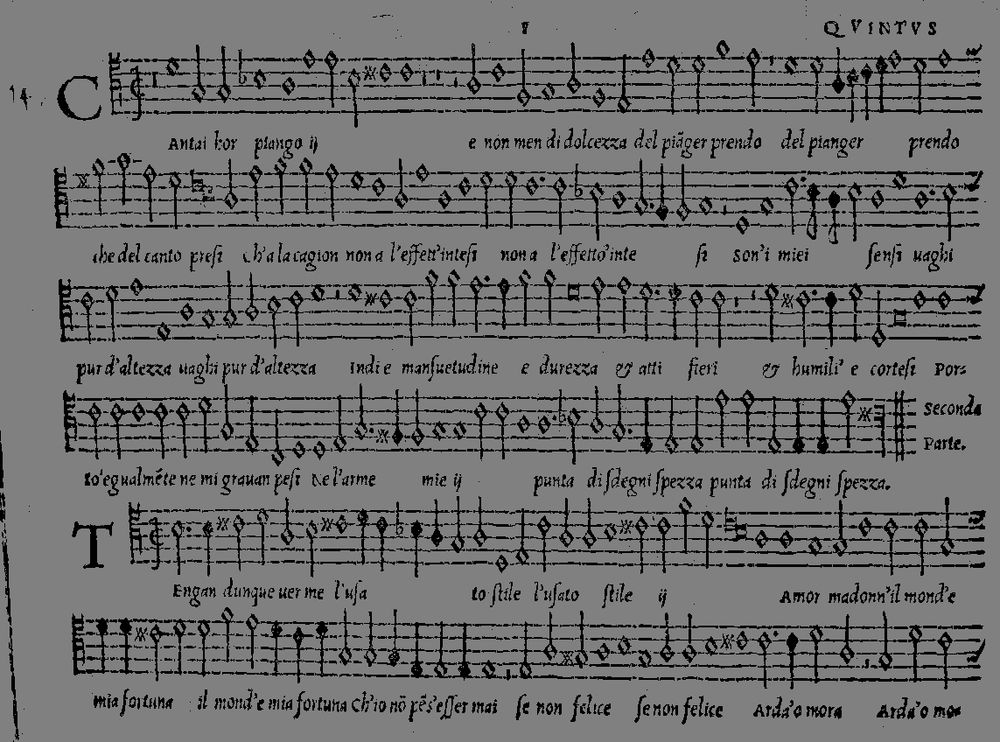 QVINTVS
14
CAntai hor piango ij e non men di dolcezza del piãger prendo del pianger prendo
che del canto presi Ch'a la cagion non a l'effett'intesi non a l'effetto'inte si Son'i miei sensi uaghi
pur d'altezza uaghi pur d'altezza Indi e mansuetudine e durezza & atti fieri & humili' e cortesi Por=
to'egualmẽte ne mi grauan pesi Ne l'arme mie ij punta di sdegni spezza punta di sdegni spezza.
Seconda
Parte.
TEngan dunque uer me l'usa to stile l'usato stile ij Amor madonn'il mond'e
mia fortuna il mond'e mia fortuna Ch'io nõ pẽs'esser mai se non felice se non felice Arda'o mora Arda'o mo=